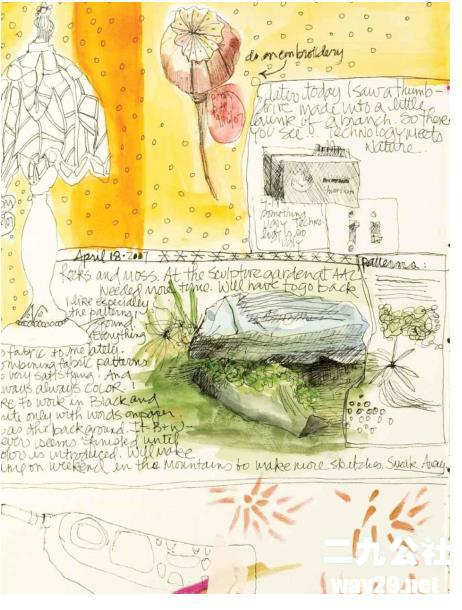 do on embroidery
later today I saw a thumb-
drive made into a little
chunk of a branch. So there
you see it. Technology meets
Nature.
something
ugly. Techno-
April 18 • 2007
Rocks and moss. At the sculpture garden at
Needed more time. Will have to go back
I like especially
the patterns
around.
Everything
is fabric to me lately.
Combining fabric patterns
is very satisfying. And
always always color!
to work in Black and
white only with words on paper
as the background. It - B + W -
ever seems skimpled until
color is introduced. Will make
on weekend in the mountains to make more sketches. Sneak Away
patterns:
二九公社
way29.net